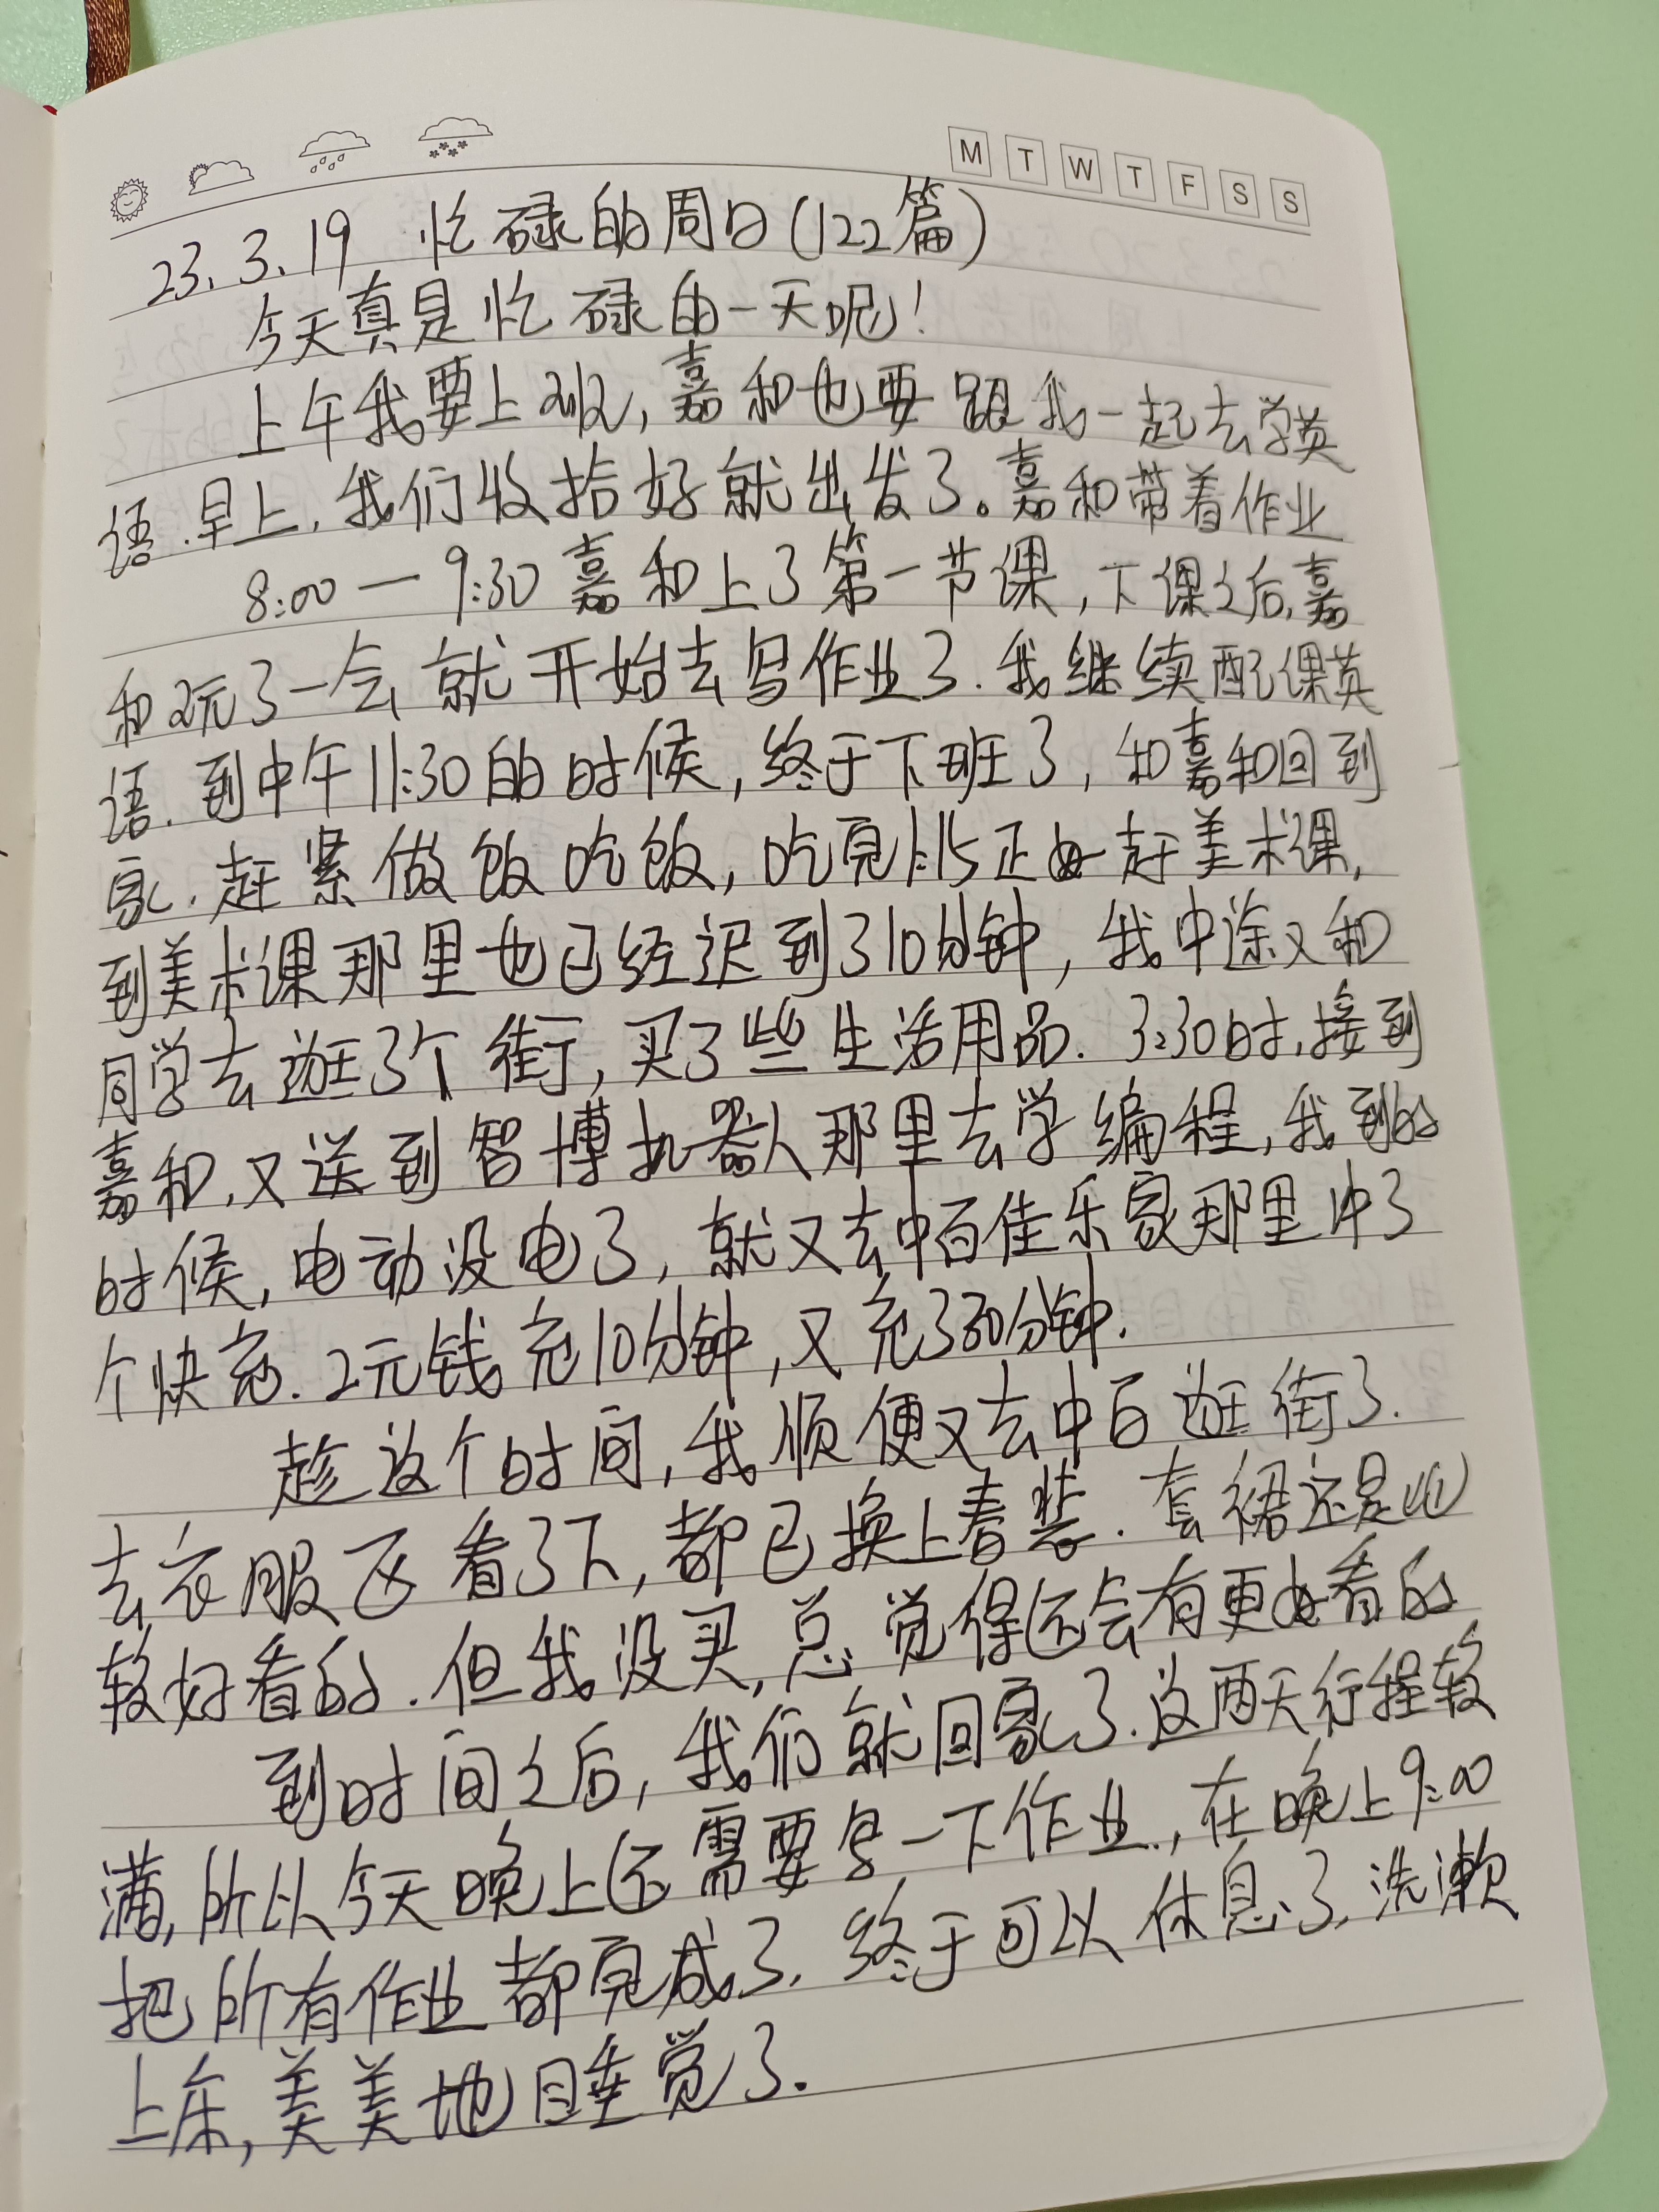 M T W T F S S
23.3.19 忙碌的周日(122篇)
今天真是忙碌的一天呢!
上午我要上班,嘉和也要跟我一起去学英
语.早上,我们收拾好就出发了。嘉和带着作业
8:00一9:30嘉和上了第一节课,下课之后,嘉
和玩了一会就开始去写作业了.我继续配课英
语.到中午11:30的时候,终于下班了,和嘉和回到
家.赶紧做饭吃饭,吃完1:15正好赶美术课,
到美术课那里也已经迟到了10分钟,我中途又和
同学去逛了个街,买了些生活用品.3:30时,接到
嘉和,又送到智博机器人那里去学编程,我到的
时候,电动没电了,就又去中百佳乐家那里冲了
个快充.2元钱充10分钟,又充了30分钟.
趁这个时间,我顺便又去中百逛街了.
去衣服区看了下,都已换上春装.套裙还是比
较好看的.但我没买,总觉得还会有更好看的
到时间之后,我们就回家了.这两天行程较
满,所以今天晚上还需要写一下作业,在晚上9:00
把所有作业都完成了,终于可以休息了,洗漱
上床,美美地睡觉了.